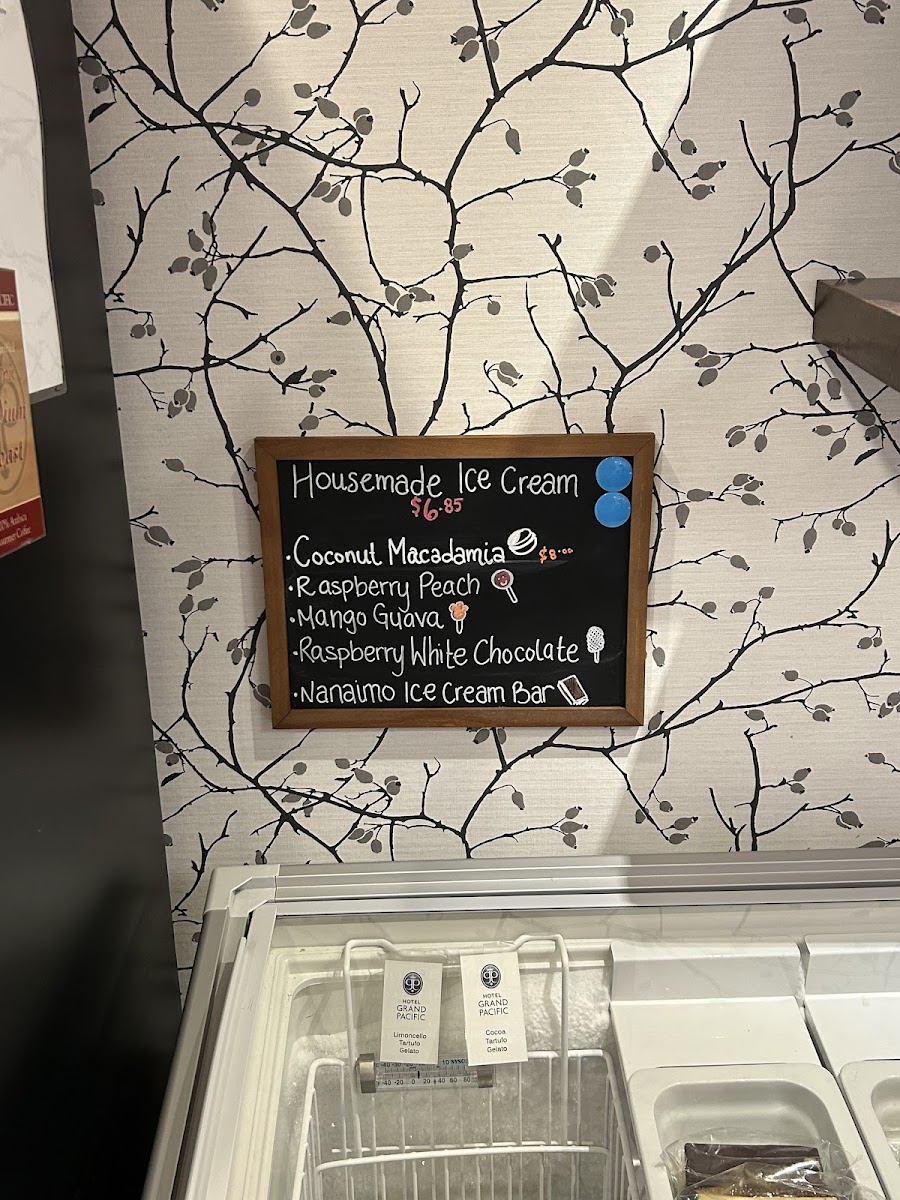 Housemade Ice Cream
$6.85
·Coconut Macadamia $8.00
·Raspberry Peach
·Mango Guava
·Raspberry White Chocolate
·Nanaimo Ice Cream Bar
HOTEL
GRAND
PACIFIC
Limoncello
Tartufo
Gelato
HOTEL
GRAND
PACIFIC
Cocoa
Tartufo
Gelato
-40 -20 0 20 40 60 80